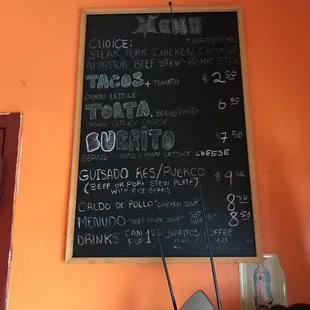 MENU
CHOICE:
STEAK, PORK, CHICKEN,
AL PASTOR, BEEF STEW - PORK STEW
TACOS + TOMATO $2.50
ONION - LETTUCE -
TORTA, BEANS 6.50
ONION - LETTUCE - CHEESE
BURRITO $7.50
BEANS - TOMATO - ONION - LETTUCE - CHEESE
GUISADO RES/PUERCO $9.50
(BEEF OR PORK STEW PLATE)
WITH RICE - BEANS
CALDO DE POLLO "CHICKEN SOUP" 8.50
MENUDO "BEEF TRIPE SOUP" 8.50
DRINKS CAN 1.25 JARRITOS COFFEE
POP 2.00 1.25